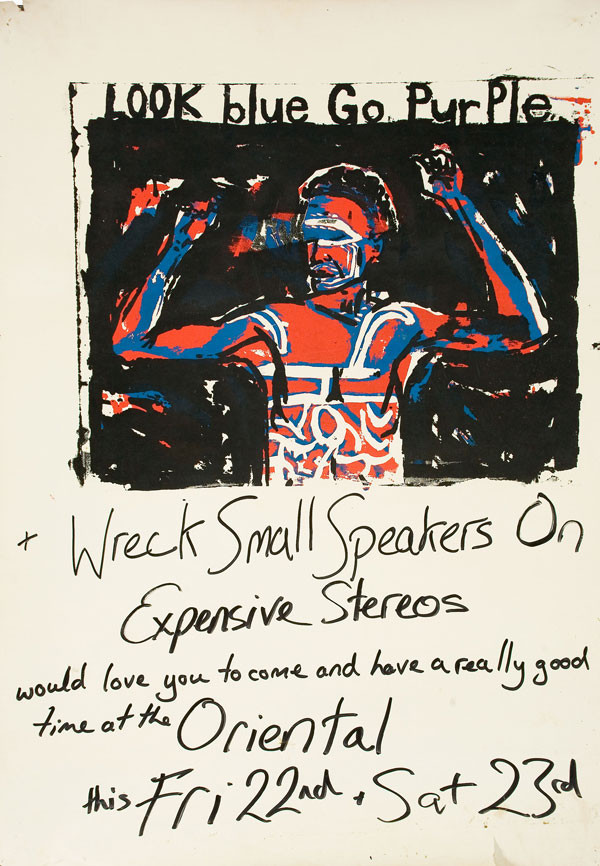 LOOK blue Go PurPle
+ Wreck Small Speakers On
Expensive Stereos
would love you to come and have a really good
time at the Oriental
this Fri 22nd + Sat 23rd